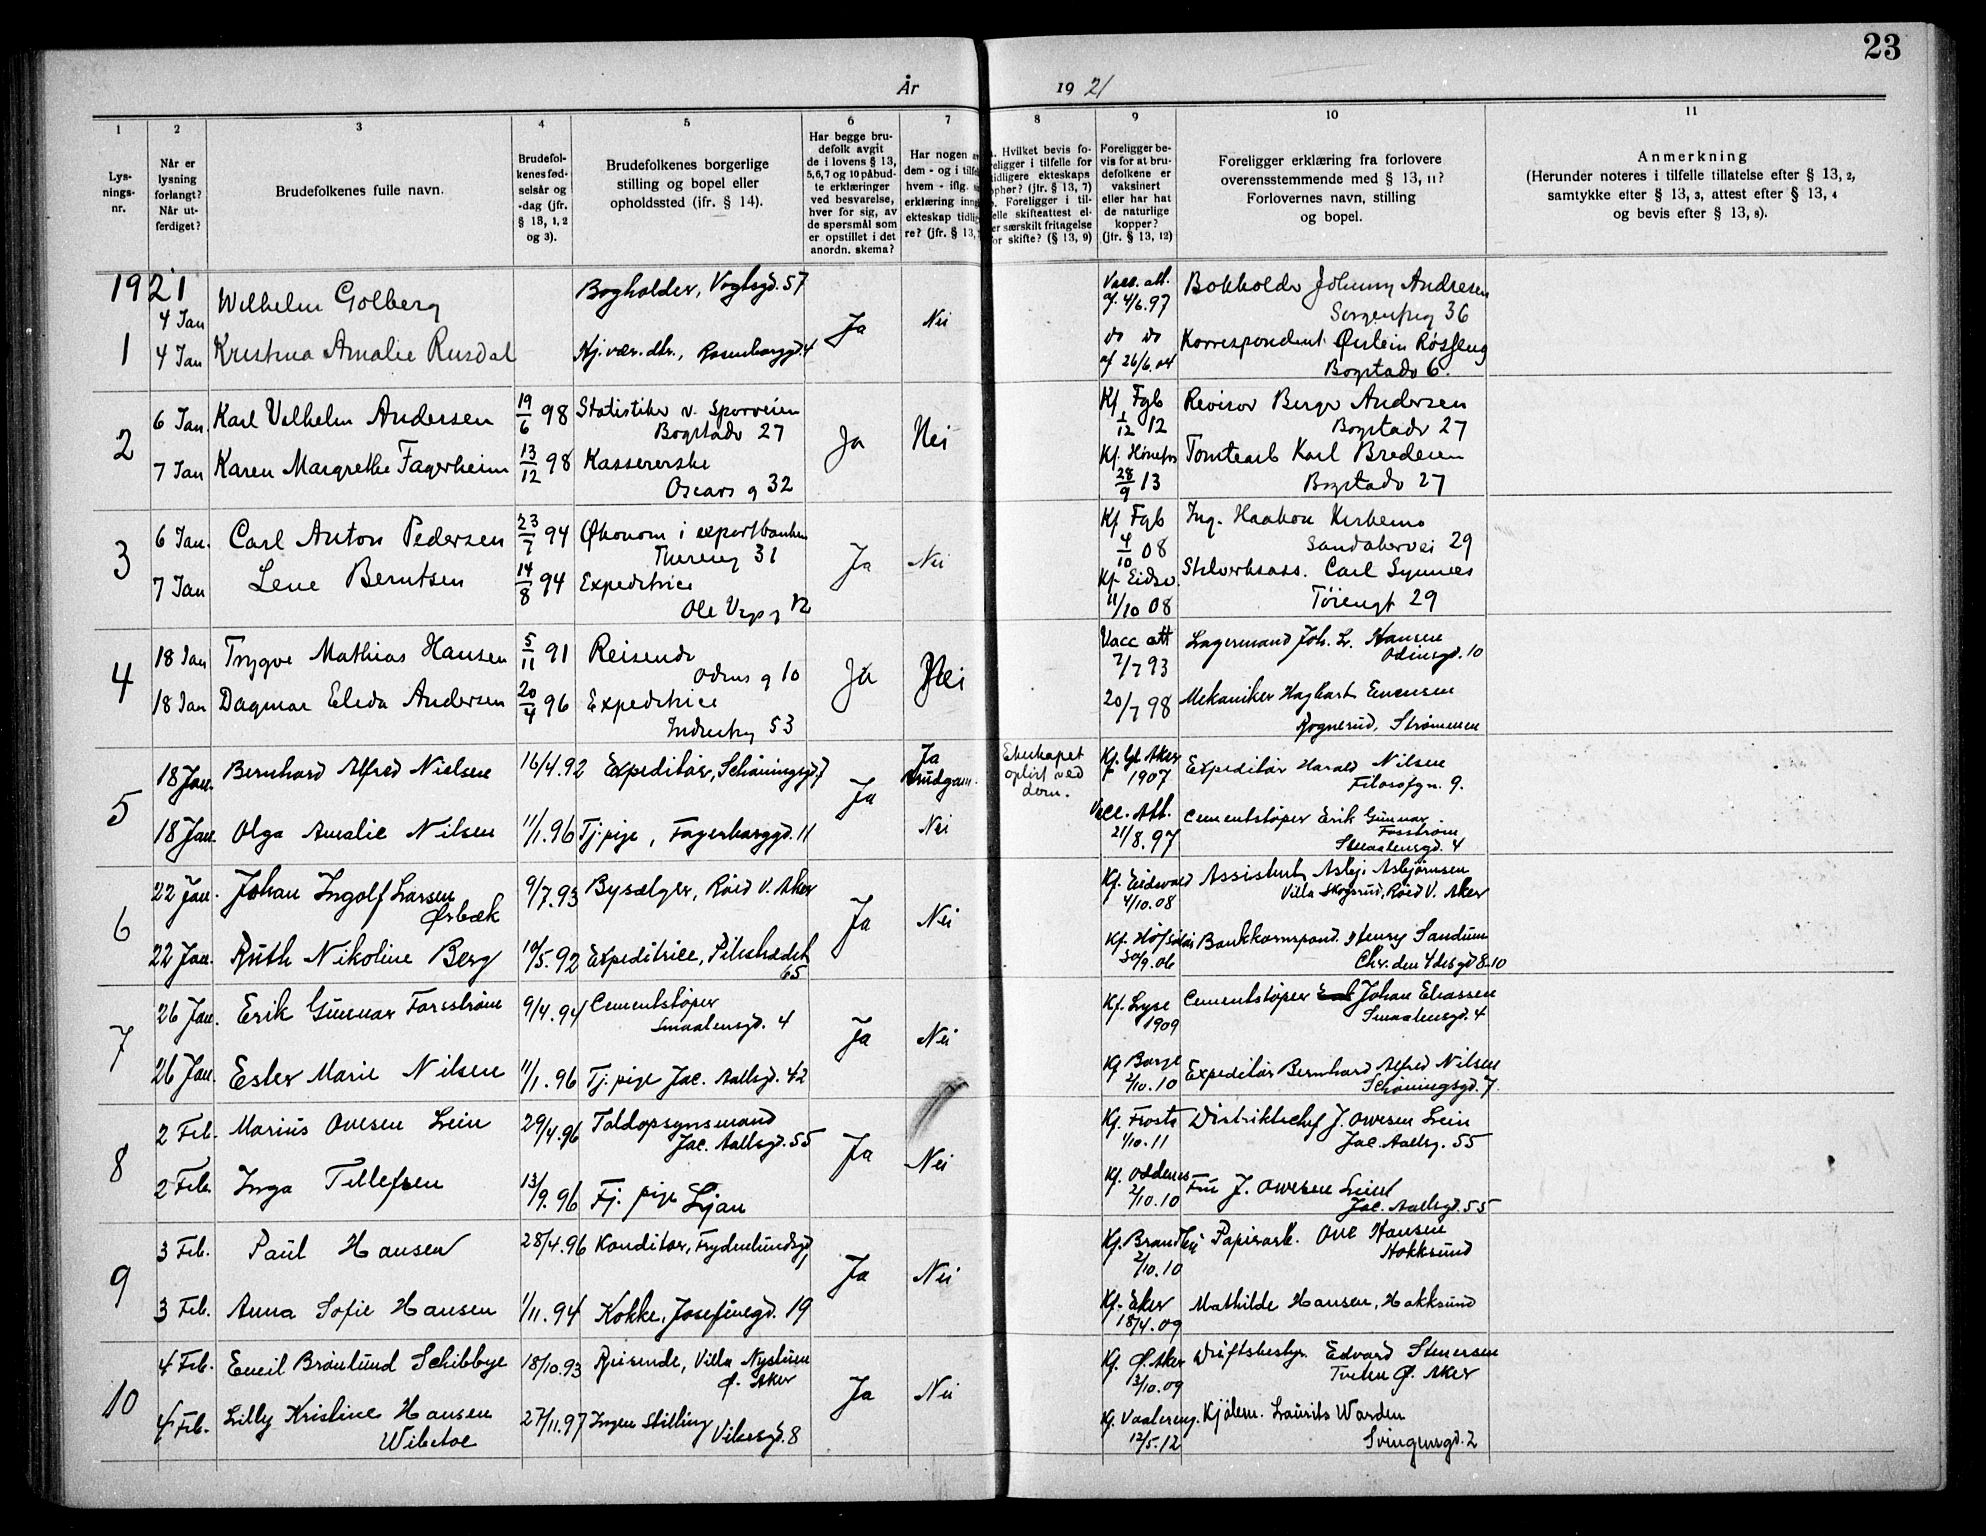 23
År 1921
1 2 3 4 5 6 7 8 9 10 11
Lys-
nings-
nr.
Når er
lysning
forlangt?
Når ut-
ferdiget?
Brudefolkenes fulle navn.
Brudefol-
kenes fød-
selsår og
-dag (jfr.
§ 13, 1, 2
og 3).
Brudefolkenes borgerlige
stilling og bopel eller
opholdssted (ifr. § 14).
Har begge bru-
defolk avgit
de i lovens § 13,
5,6,7 og 10 påbud-
te erklæringer
ved besvarelse,
hver for sig, av
de spørsmål som
er opstillet i det
anordn. skema?
Har nogen
dem - og i
hvem - iflg.
erklæring
ekteskap
re? (jfr. § 13,
Hvilket bevis fo-
religger i tilfelle for
tidligere ekteskaps
ophør? (jfr. § 13, 7)
Foreligger i til-
felle skifteattest el-
er særskilt fritagelse
for skifte? (§ 13, 9)
Foreligger be-
vis for at bru-
defolkene er
vaksinert
eller har hat
de naturlige
kopper?
(jfr. § 13, 12)
Foreligger erklæring fra forlovere
overensstemmende med § 13, 11?
Forlovernes navn, stilling
og bopel.
Anmerkning
(Herunder noteres i tilfelle tillatelse efter § 13, 2,
samtykke efter § 13, 3, attest efter § 13, 4
og bevis efter § 13, 8).
1921
1
4 Jan Wilhelm Golberg Bogholder, Vogtsgd. 57 Ja Nei Vacc. att. af 4/6.97 Bokholder Johnny Andresen
36
4 Jan Kristina Amalie Rusdal 4 do do af 26/6.04 Korrespondent
Bogstadv 6.
2
6 Jan. Karl Vilhelm Andersen 19/6 98 Statistiker v. Sporveien Ja Nei Kf Fgb Revisor Berge Andersen
Bogstadv 27 1/12 12 Bogstadv 27
7 Jan Karen Margrethe Fagerheim 13/12 98 Kassererske Kf. Hønefos Tomtearb Karl Bredesen
Oscars g 32 28/9 13 Bogstadv 27
3
6 Jan. Carl Anton Pedersen 23/7 94 Økonom i exportbanken Ja Nei Kf Fgb Ing. Haakon
31 4/10 08 Sandakervei 29
7 Jan Lene Berntsen 14/8 94 Expeditrice Kf. Eidsv. Carl Synnes
Ole Vigs g 12 11/10 08 Tøiengt 29
4
18 Jan Trygve Mathias Hansen 5/11 91 Reisende Ja Nei Vacc att Lagermand Joh. L. Hansen
Odins g 10 7/7 93 Odinsgd. 10
18 Jan Dagmar Elida Andersen 20/4 96 Expeditrice 20/7 98 Mekaniker Hagbart Evensen
Industrig 53 Rognerud, Strømmen
5
18 Jan. Bernhard Alfred Nielsen 16/4.92 Expeditør, Schøningsgd. 7 Ja Ja Ekteskapet Kf. Gl. Aker Expeditør Harald Nilsen
Brudgom opløst ved 1907 Filosofgn. 9.
dom.
18 Jan. Olga Amalie Nilsen 11/1.96 Tj. pige, Fagerborggd. 11 Nei Vacc. Att. Cementstøper Erik Gunnar
21/8.97 Fosstrøm
Smaalensgd. 4
6
22 Jan. Johan Ingolf Larsen 9/7.93 Bysælger, Røed V. Aker Ja Nei Kf. Eidsvold Assistent Asbj. Asbjørnsen
Ørbæk 4/10.08 Villa Skogsrud, Røed V. Aker
22 Jan. Ruth Nikoline Berg 10/5.92 Expeditrice, Pilestrædet Bankkorrespond. Henry Sandum
65 30/9.06 Chr. den 4des gd 8-10
7
26 Jan. Erik Gunnar Forsstrøm 9/4.94 Cementstøper Ja Nei Kf. Lyse Cementstøper Johan Eliassen
Smaalensgd. 4 1909 Smaalensgd. 4
26 Jan. Ester Marie Nilsen 11/1.96 Tj. pige Jac. Aallsgd. 42 Kf Borge Expeditør Bernhard Alfred Nilsen
2/10.10 Schøningsgd. 7.
8
2 Feb. Marius Owesen Lein 29/4.96 Toldopsynsmand Ja Nei Kf. Frosta Distriktschef J. Owesen Lein
Jac. Aallsgd. 55 1/10.11 Jac. Aallsg. 55
2 Feb. Inga Tellefsen 13/9.96 Tj. pige Ljan Kf. Oddernes Fru J. Owesen Lein
2/10.10 Jac. Aallsgd. 55
9
3 Feb. Paul Hansen 28/4.96 Konditor, Frydenlundsgd. Ja Nei Kf. Brandbu Papirarb. Ole Hansen
2/10.10 Hokksund
3 Feb. Anna Sofie Hansen 1/11.94 Kokke, Josefinegd. 19 Kf. Eker Mathilde Hansen, Hokksund
18/4.09
10
4 Feb. Emil Brønlund Schibbye 18/10.93 Reisende, Villa Nystuen Ja Nei Kf. Ø. Aker Driftsbestyr. Edvard Stenersen
Ø. Aker 3/10.09 Tveten Ø. Aker
4 Feb. Lilly Kristine Hansen 27/11.97 Ingen Stilling Kf. Vaalereng. Kjølem. Laurits Warden
Wibetoe Vibesgd. 8 12/5.12 Svingensgd. 2